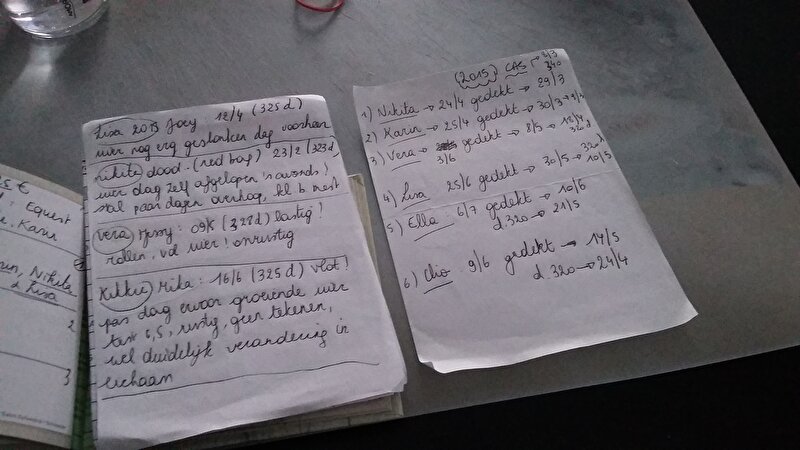 5 €
Equest
e. Karin
Nikita
& Lisa
2
3
Lisa 2015 Joey 12/4 (325 d)
uier nog erg geslonken dag voorheen
Nikita dood - (red bag) 23/2 (323 d)
uier dag zelf afgelopen 's avonds!
stal paar dagen overhoop, kl b mest
Vera Messy: 09/5 (328 d) lastig!
rollen, vol uier! onrustig
Kikki Mika: 16/6 (325 d) vlot!
pas dag ervoor groeiende uier
test 6,5, rustig, geen tekenen,
wel duidelijk verandering in
lichaam
(2015) CAS 3/3
340
1) Nikita → 24/4 gedekt → 29/3
2) Karin → 25/4 gedekt → 30/3
3) Vera → 3/6 gedekt → 8/5
320 d
4) Lisa 25/6 gedekt → 30/5 → 10/5
320 d
5) Ella: 6/7 gedekt → 10/6
d. 320 → 21/5
6) Clio 9/6 gedekt → 14/5
d. 320 → 24/4